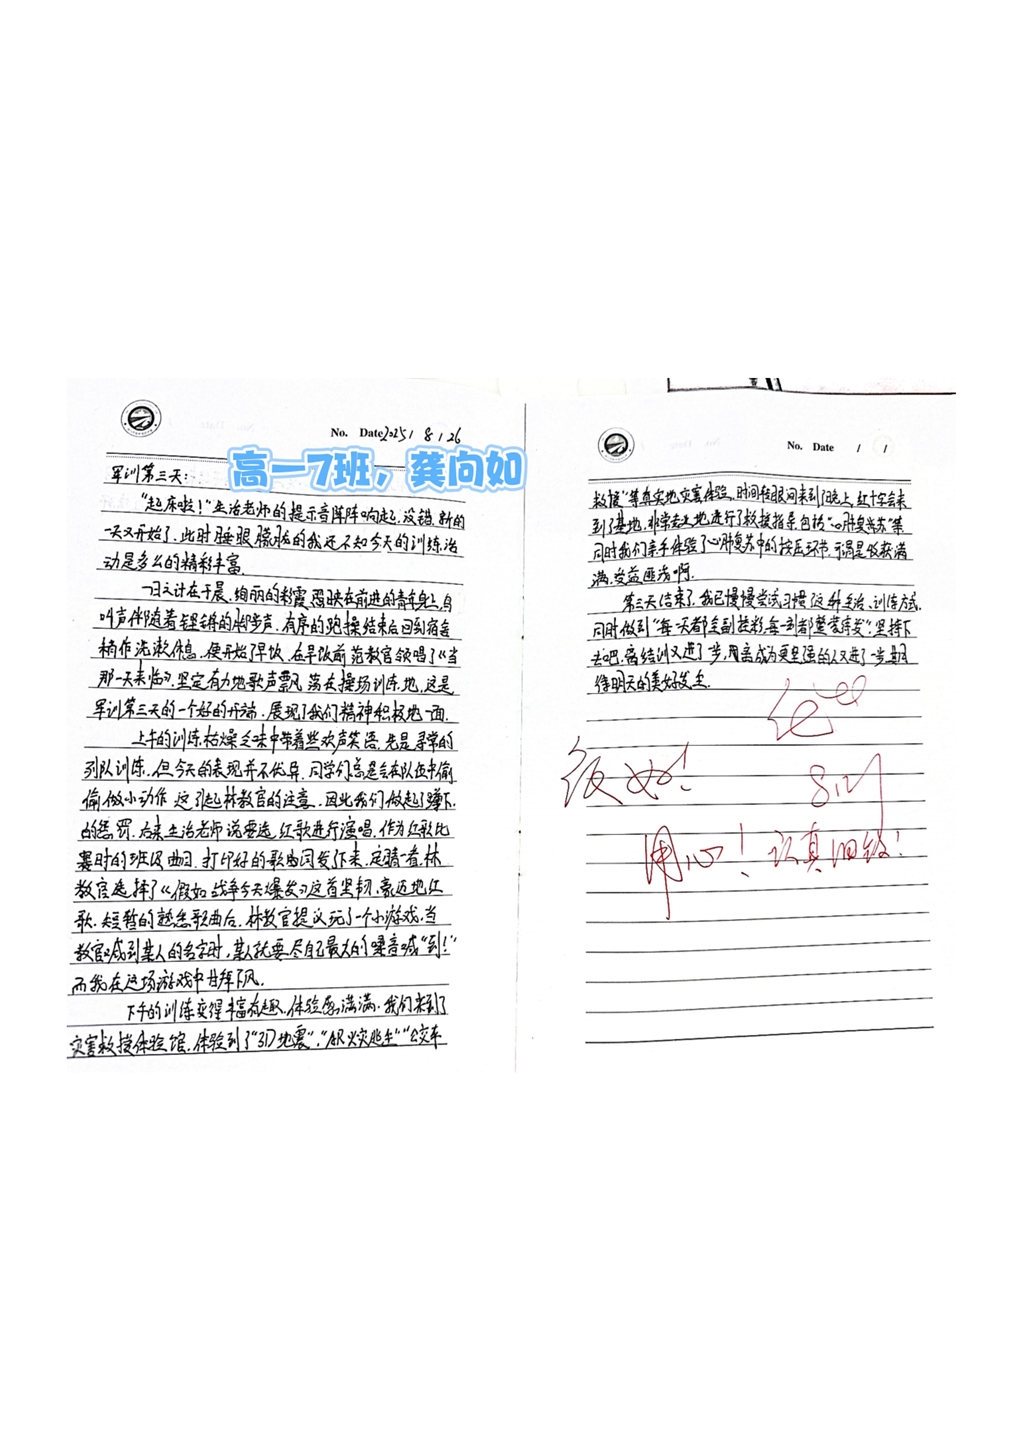 No. Date 2025 / 8 / 26
高一7班，龚向如
军训第三天：
“起床啦！”生活老师的提示音阵阵响起，没错，新的
一天又开始了，此时睡眼朦胧的我还不知今天的训练活
动是多么的精彩丰富。
一日之计在于晨，绚丽的彩霞照映在前进的青年身上，鸟
叫声伴随着铿锵的脚步声，有序的跑操结束后回到宿舍
稍作洗漱休息，便开始了早饭，在早饭前范教官领唱了《当
那一天来临》，坚定有力地歌声飘荡在操场训练地，这是
军训第三天的一个好的开端，展现了我们精神积极地一面。
上午的训练枯燥乏味中带着些欢声笑语，先是寻常的
列队训练，但今天的表现并不优异，同学们总是会在队伍中偷
偷做小动作，这引起林教官的注意，因此我们做起了蹲下
的惩罚，后来生活老师说要选红歌进行演唱，作为红歌比
赛时的班级曲目，打印好的歌曲词发下来，定睛一看，林
教官选择了《假如战争今天爆发》这首坚韧、豪迈地红
歌，短暂的熟悉歌曲后，林教官提议玩了一个小游戏，当
教官喊到某人的名字时，某人就要尽自己最大的嗓音喊“到！”
而我在这场游戏中甘拜下风。
下午的训练变得丰富有趣，体验感满满，我们来到了
灾害救援体验馆，体验到了“3D地震”，“AR火灾逃生”“公交车
No. Date / /
救援”等真实地灾害体验，时间转眼间来到了晚上，红十字会来
到了基地，非常专业地进行了救援指导，包括“心肺复苏”等
同时我们亲手体验了心肺复苏中的按压环节，可谓是收获满
满，受益匪浅啊。
第三天结束了，我已慢慢尝试习惯了这种生活、训练方式，
同时做到“每一天都全副精彩，每一刻都整装待发”，坚持下
去吧，离结训又进了一步，用离成为更坚强的人又进了一步，期
待明天的美好发生。
很好！
8.27
用心！ 认真细致！